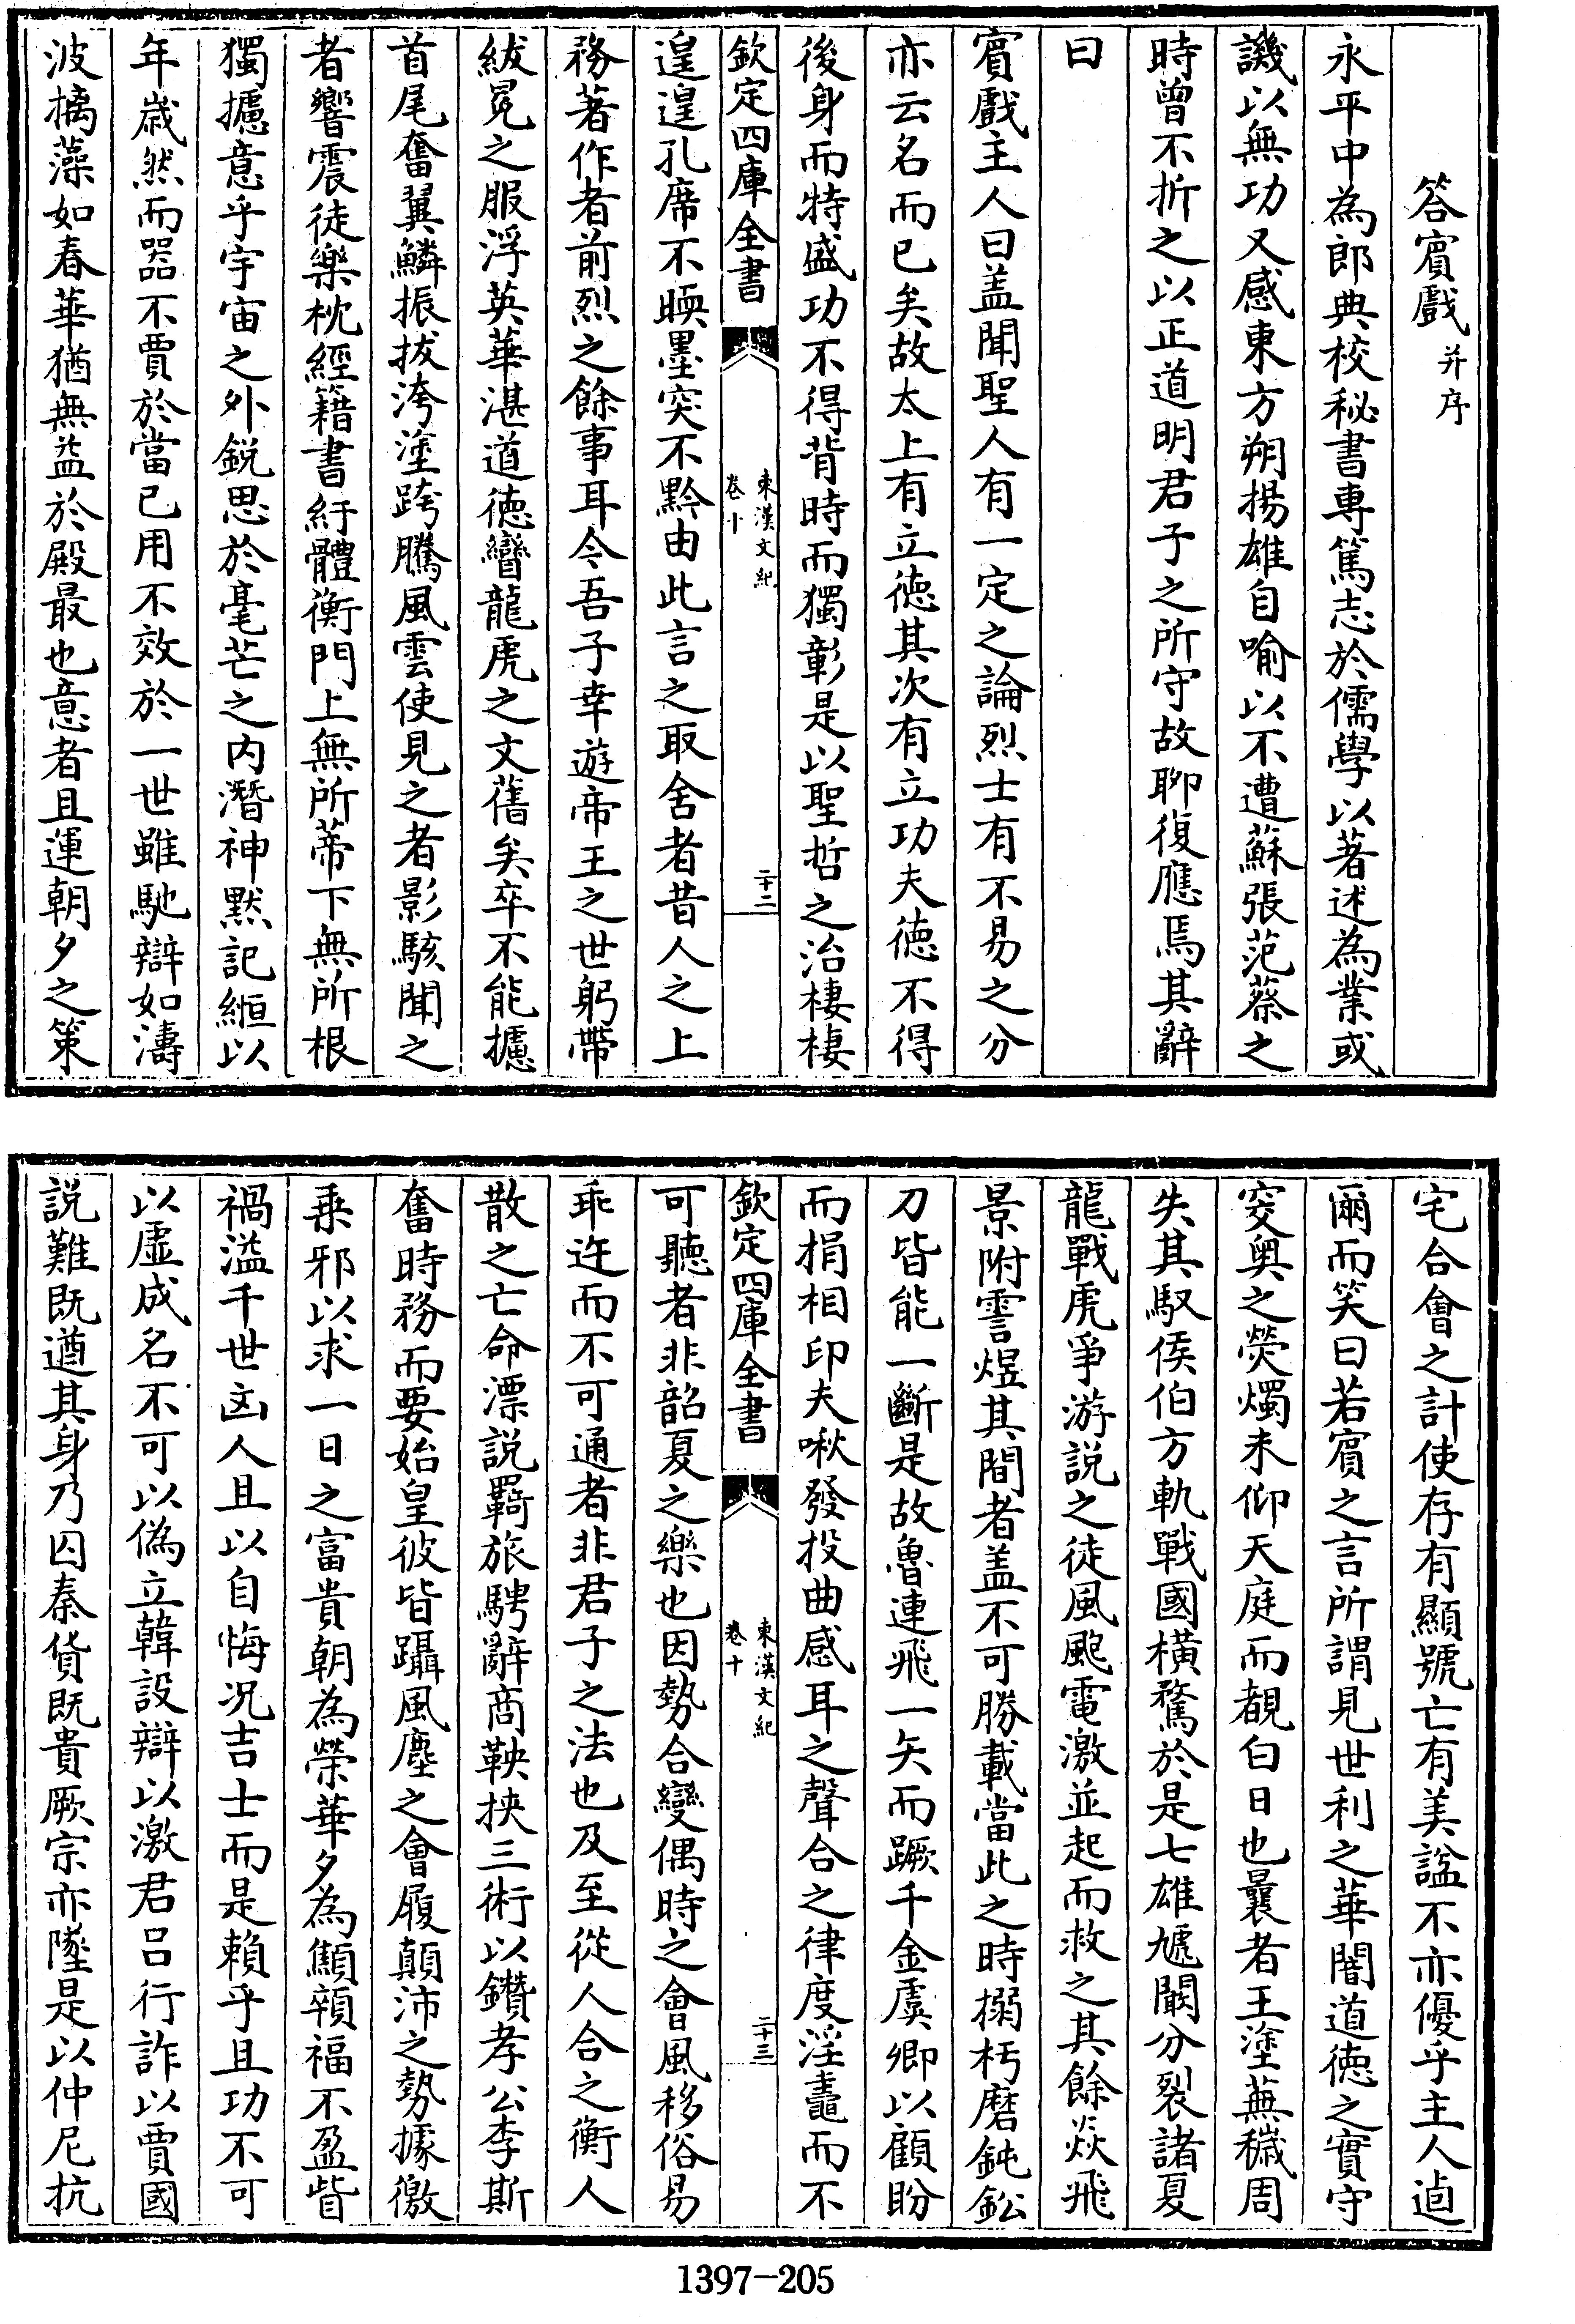 答賓戲并序
永平中為郎典校秘書專篤志於儒學以著述為業或
譏以無功又感東方朔揚雄自喻以不遭蘇張范蔡之
時曾不折之以正道明君子之所守故聊復應焉其辭
曰
賓戲主人曰盖聞聖人有一定之論烈士有不易之分
亦云名而已矣故太上有立德其次有立功夫德不得
後身而特盛功不得背時而獨彰是以聖哲之治棲棲
欽定四庫全書
東漢文紀
卷十
二十二
遑遑孔席不暝墨突不黔由此言之取舍者昔人之上
務著作者前烈之餘事耳今吾子幸遊帝王之世躬帶
紱冕之服浮英華湛道德矕龍虎之文舊矣卒不能攄
首尾奮翼鱗振拔洿塗跨騰風雲使見之者影駭聞之
者響震徒樂枕經籍書紆體衡門上無所蒂下無所根
獨攄意乎宇宙之外鋭思於毫芒之内潛神默記緪以
年歳然而器不賈於當已用不效於一世雖馳辯如濤
波摛藻如春華猶無益於殿最也意者且運朝夕之策
宅合會之計使存有顯號亡有美謚不亦優乎主人逌
爾而笑曰若賓之言所謂見世利之華闇道德之實守
穾奥之熒燭未仰天庭而覩白日也曩者王塗蕪穢周
失其馭侯伯方軌戰國橫騖於是七雄虓闞分裂諸夏
龍戰虎爭游説之徒風颮電激並起而救之其餘猋飛
景附霅煜其間者盖不可勝載當此之時搦朽磨鈍鈆
刀皆能一斷是故魯連飛一矢而蹶千金虞卿以顧盼
而捐相印夫啾發投曲感耳之聲合之律度淫䵷而不
欽定四庫全書
東漢文紀
卷十
二十三
可聽者非韶夏之樂也因勢合變偶時之會風移俗易
乖迕而不可通者非君子之法也及至從人合之衡人
散之亡命漂説羇旅騁辭商鞅挾三術以鑽孝公李斯
奮時務而要始皇彼皆躡風塵之會履顛沛之勢據徼
乗邪以求一日之富貴朝為榮華夕為顦顇福不盈眥
禍溢千世凶人且以自悔况吉士而是賴乎且功不可
以虚成名不可以偽立韓設辯以激君吕行詐以賈國
説難既遒其身乃囚秦貨既貴厥宗亦墜是以仲尼抗
1397-205